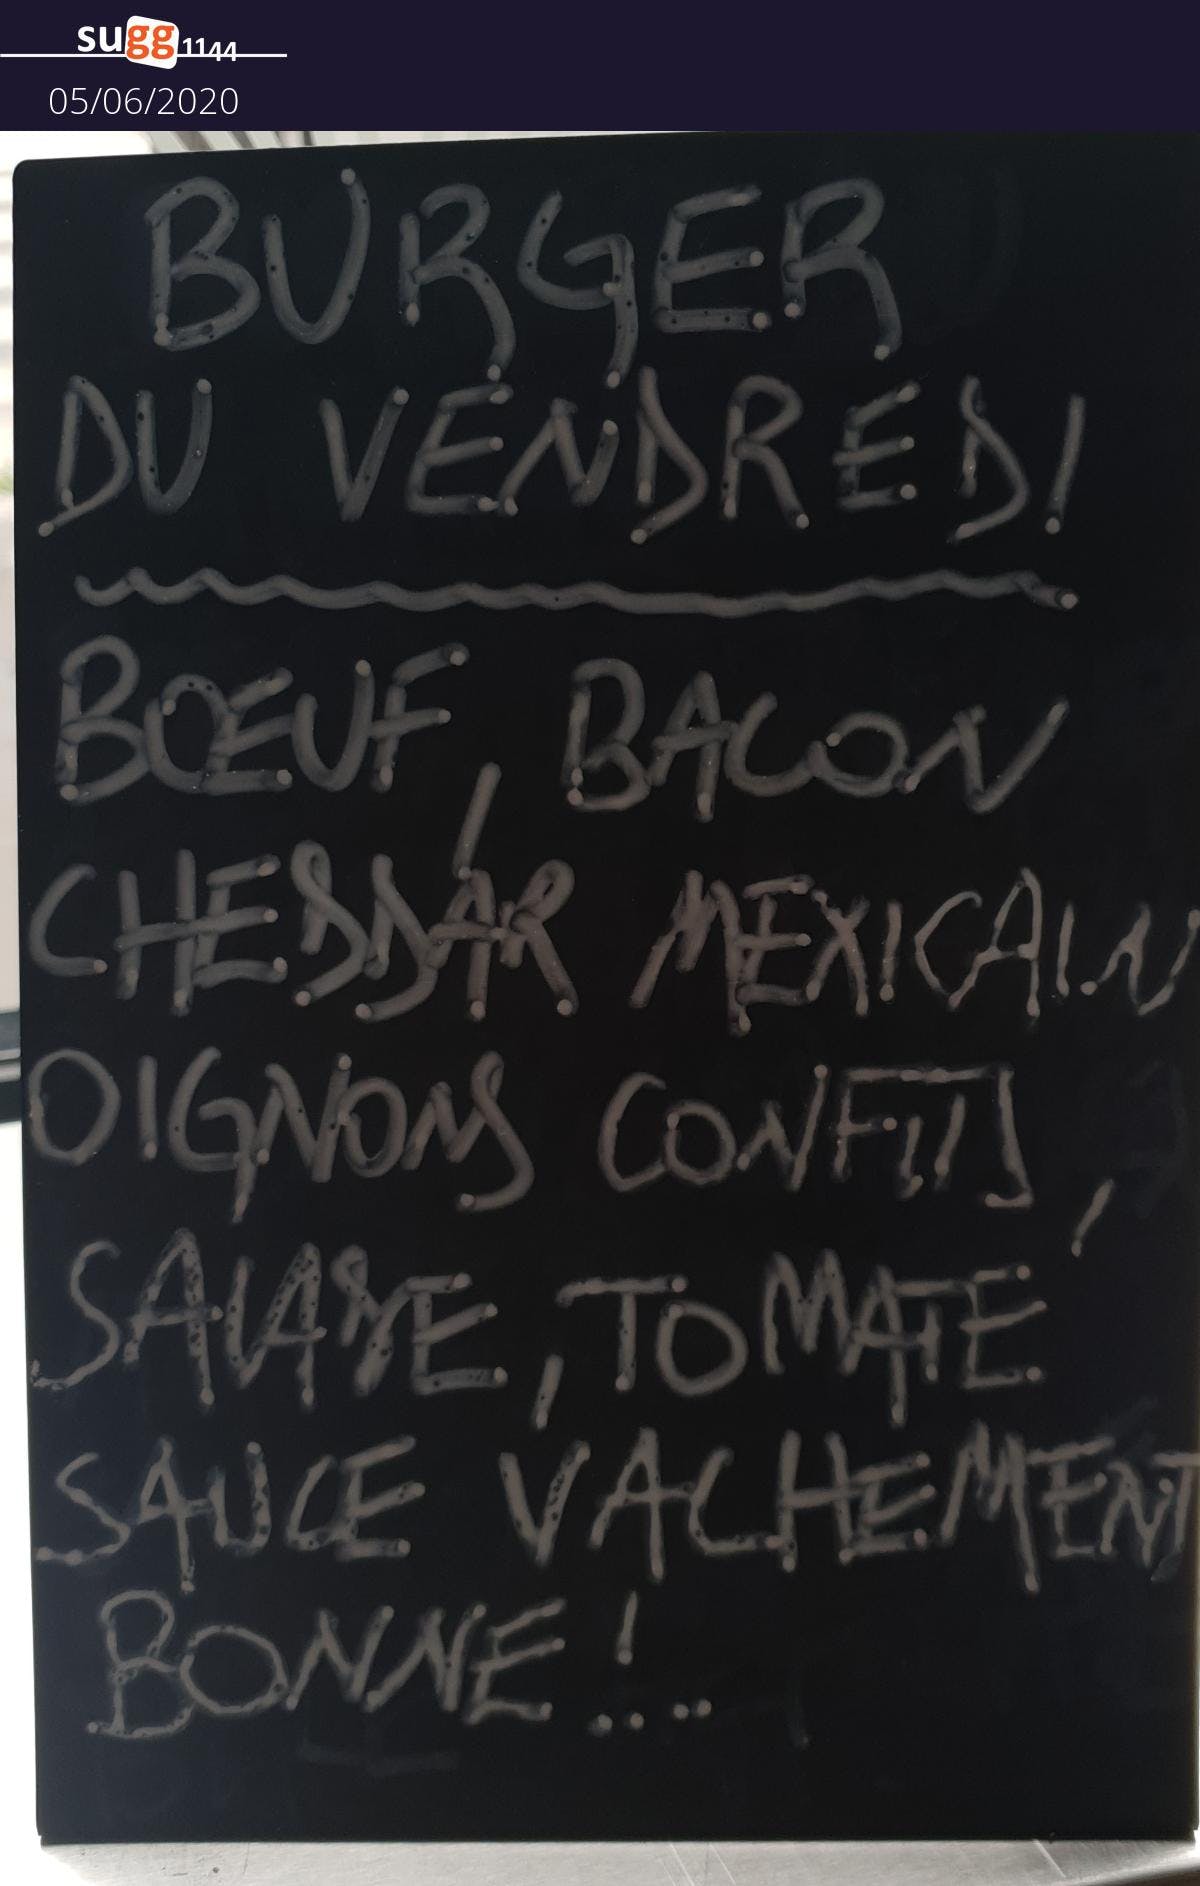 sugg1144
05/06/2020
BURGER
DU VENDREDI
BŒUF, BACON
CHEDDAR MEXICAIN
OIGNONS CONFITS,
SALADE, TOMATE
SAUCE VACHEMENT
BONNE!...